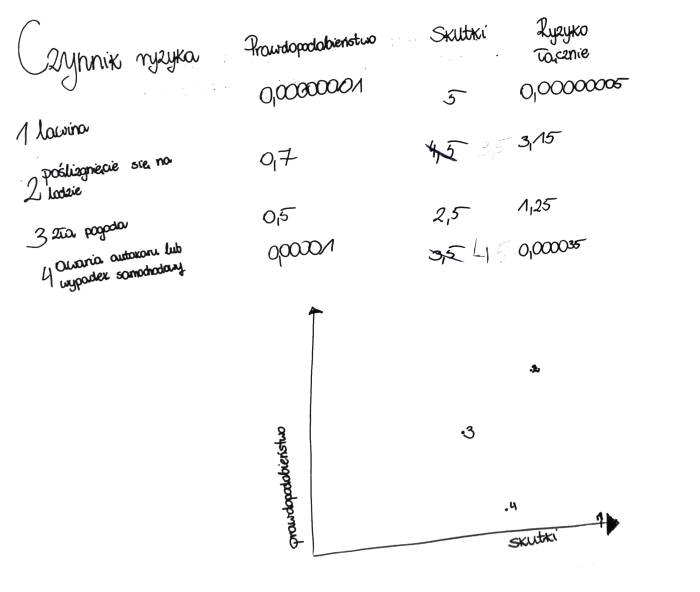 Czynnik ryzyka Prawdopodobieństwo Skutki Ryzyko
łącznie
0,00000001 5 0,00000005
1 lawina
2 poślizgnięcie się na lodzie 0,7 4,5 3,5 3,15
3 zła pogoda 0,5 2,5 1,25
4 awaria autokaru lub wypadek samochodowy 0,00001 3,5 4,5 0,000035
2
3
4
1
prawdopodobieństwo
skutki